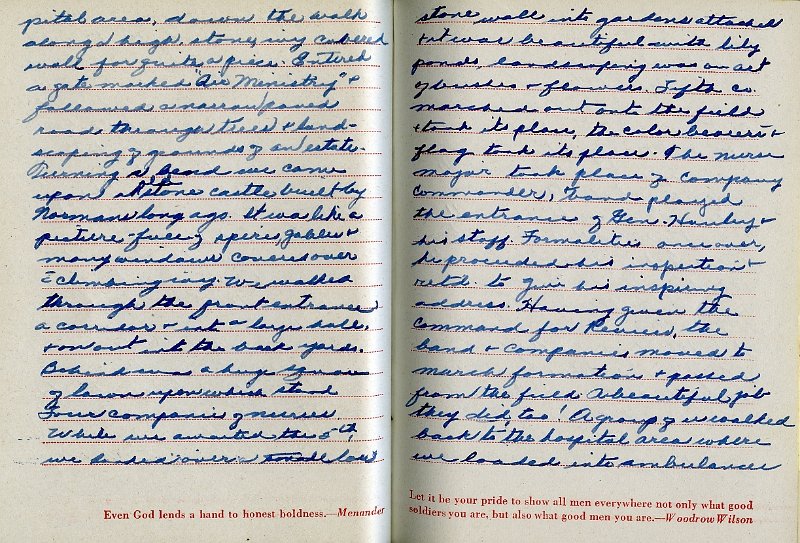 pital area, down the walk
along a high stone, ivy covered
wall for quite a piece. Entered
a gate marked "Air Ministry" +
followed a narrow paved
road through trees + land-
scaping of grounds of an estate.
Turning a bend we came
upon a stone castle built by
Normans long ago. It was like a
picture-full of spires, gables +
many windows covered over
c climbing ivy. We walked
through the front entrance
a corridor + into a large hall,
+ on out into the back yards.
Behind was a huge square
of lawn upon which stood
Four companies of nurses.
While we awaited the 5th,
we looked over a low
stone wall into gardens attached
+ it was beautiful with lily
ponds, landscaping was an art
of bushes + flowers. Fifth co.
marched out onto the field
+ took its place, the color bearers +
flag took its place. The nurse
major took place of company
commander, band played
the entrance of Gen. Hawley +
his staff. Formalities once over,
he proceeded his inspection +
ret'd. to give his inspiring
address. Having given the
command for Review, the
band + companies moved to
march formation + passed
from the field. A beautiful job
they did, too! A group of us walked
back to the hospital area where
we loaded into ambulances
Even God lends a hand to honest boldness.—Menander
Let it be your pride to show all men everywhere not only what good
soldiers you are, but also what good men you are.—Woodrow Wilson